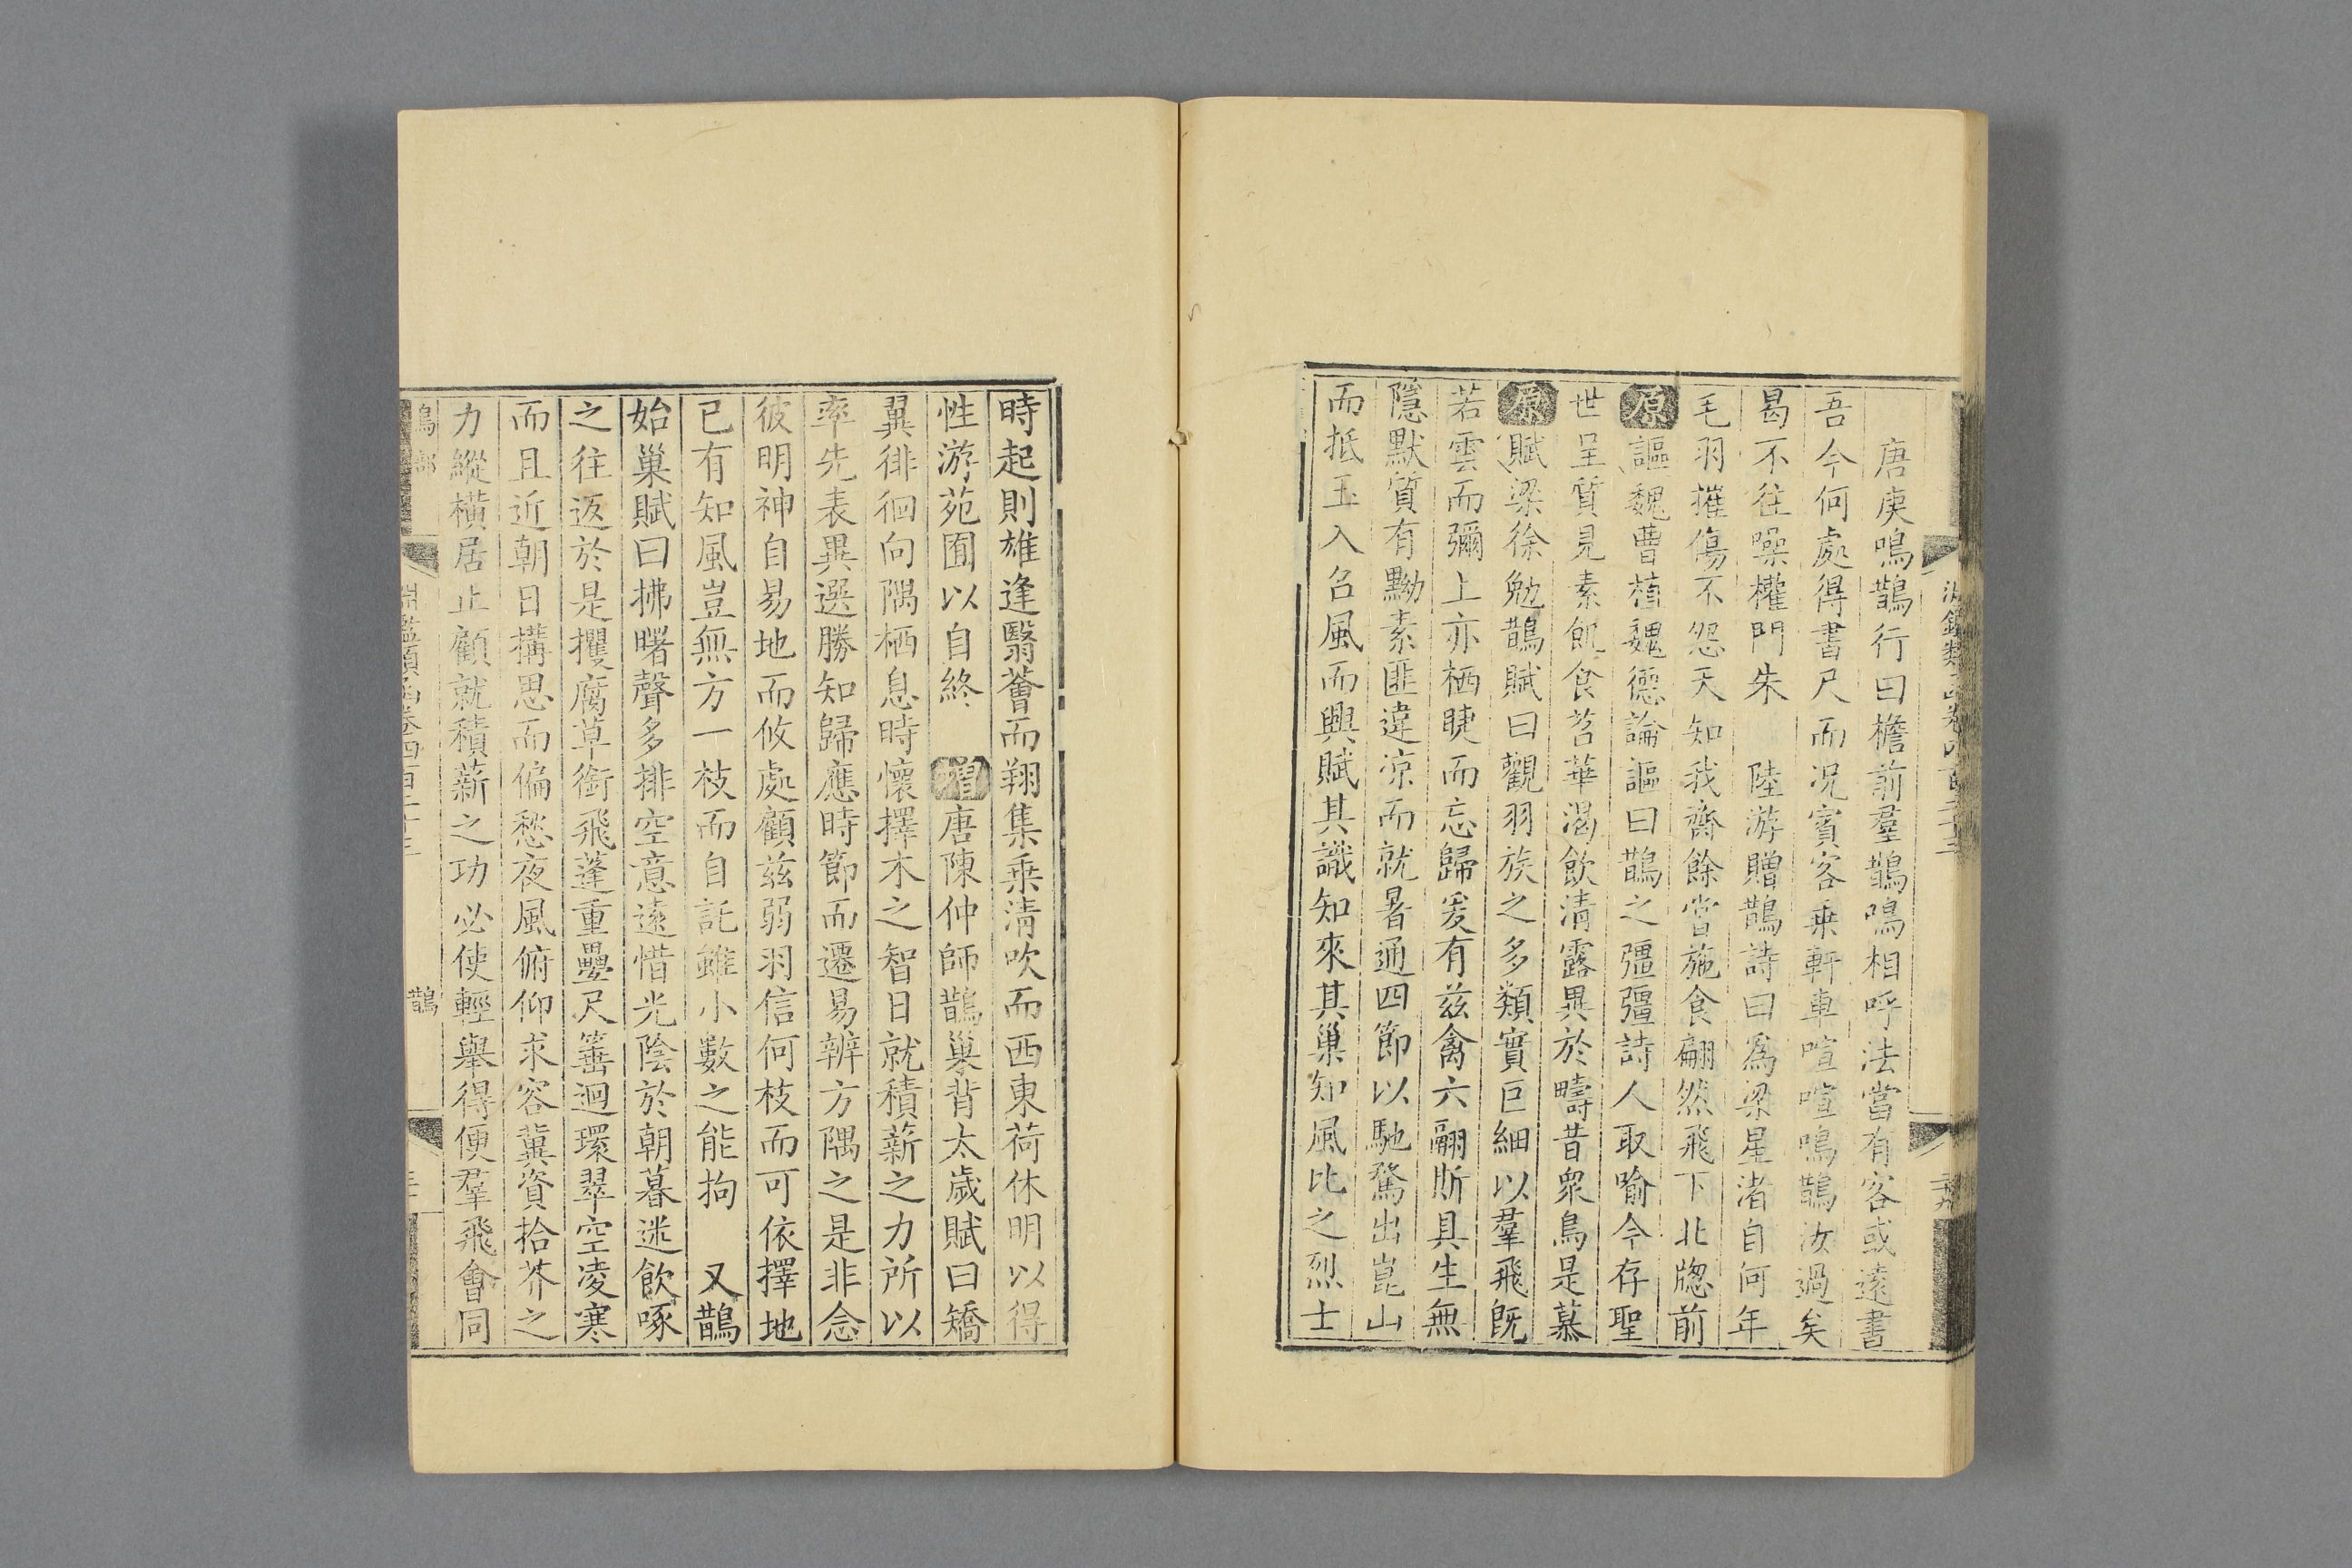 唐庚鳴鵲行曰檐前羣鵲鳴相呼法當有客或遠書
吾今何處得書尺而况賓客乗軒車喧喧鳴鵲汝過矣
曷不往噪權門朱 陸游贈鵲詩曰爲梁星渚自何年
毛羽摧傷不怨天知我齋餘當施食翩然飛下北牎前
原謳魏曹植魏德論謳曰鵲之彊彊詩人取喻今存聖
世呈質見素飢食苕華渴飲清露異於疇昔衆鳥是慕
原賦梁徐勉鵲賦曰觀羽族之多類實巨細以羣飛旣
若雲而彌上亦栖睫而忘歸爰有兹禽六翮斯具生無
隱默質有黝素匪違涼而就暑通四節以馳騖出崑山
而抵玉入名風而興賦其識知來其巢知風比之烈士
時起則雄逢翳薈而翔集乗清吹而西東荷休明以得
性游苑囿以自終 增唐陳仲師鵲巢背太歲賦曰矯
翼徘徊向隅栖息時懷擇木之智日就積薪之力所以
率先表異選勝知歸應時節而遷易辨方隅之是非念
彼明神自易地而攸處顧兹弱羽信何枝而可依擇地
已有知風豈無方一枝而自託雖小數之能拘 又鵲
始巢賦曰拂曙聲多排空意遠惜光陰於朝暮迷飲啄
之往返於是攫腐草銜飛蓬重疊尺籥迴環翠空凌寒
而且近朝日搆思而偏愁夜風俯仰求容冀資拾芥之
力縱橫居止顧就積薪之功必使輕舉得便羣飛會同
鳥部 淵鑑類函卷四百二十三 鵲 三十